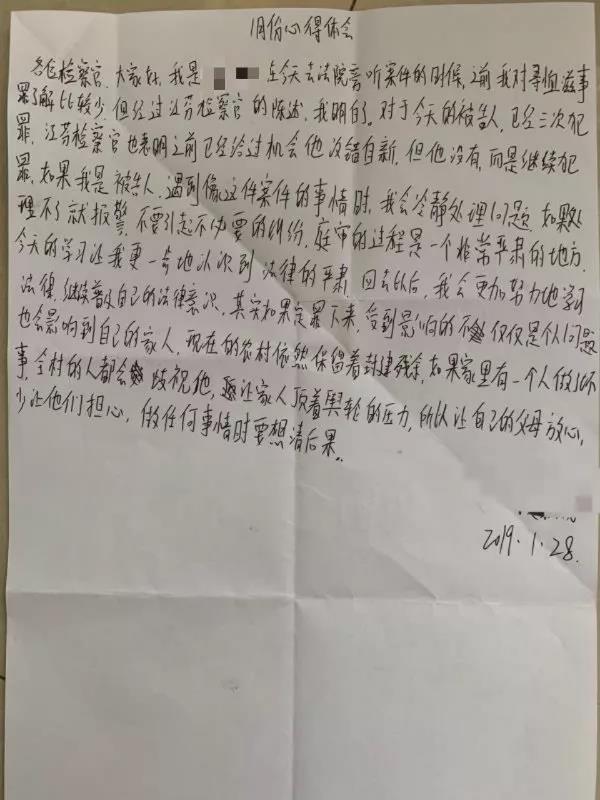 1月份心得体会
各位检察官,大家好,我是 在今天去法院旁听案件的时候,之前我对寻衅滋事
罪了解比较少,但经过江芬检察官的陈述,我明白了。对于今天的被告人,已经三次犯
罪,江芬检察官也表明之前已经给过机会他改错自新,但他没有,而是继续犯
罪,如果我是被告人,遇到像这件案件的事情时,我会冷静处理问题,如果处
理不了就报警,不要引起不必要的纠纷,庭审的过程是一个非常严肃的地方.
今天的学习让我更一步地认识到法律的严肃,回去以后,我会更加努力地学习
法律,继续普及自己的法律意识,其实如果定罪下来,受到影响的不仅仅是个人问题
也会影响到自己的家人,现在的农村依然保留着封建残余,如果家里有一个人做了坏
事,全村的人都会歧视他,让家人顶着舆轮的压力,所以让自己的父母放心,
少让他们担心,做任何事情时要想清后果..
2019.1.28.